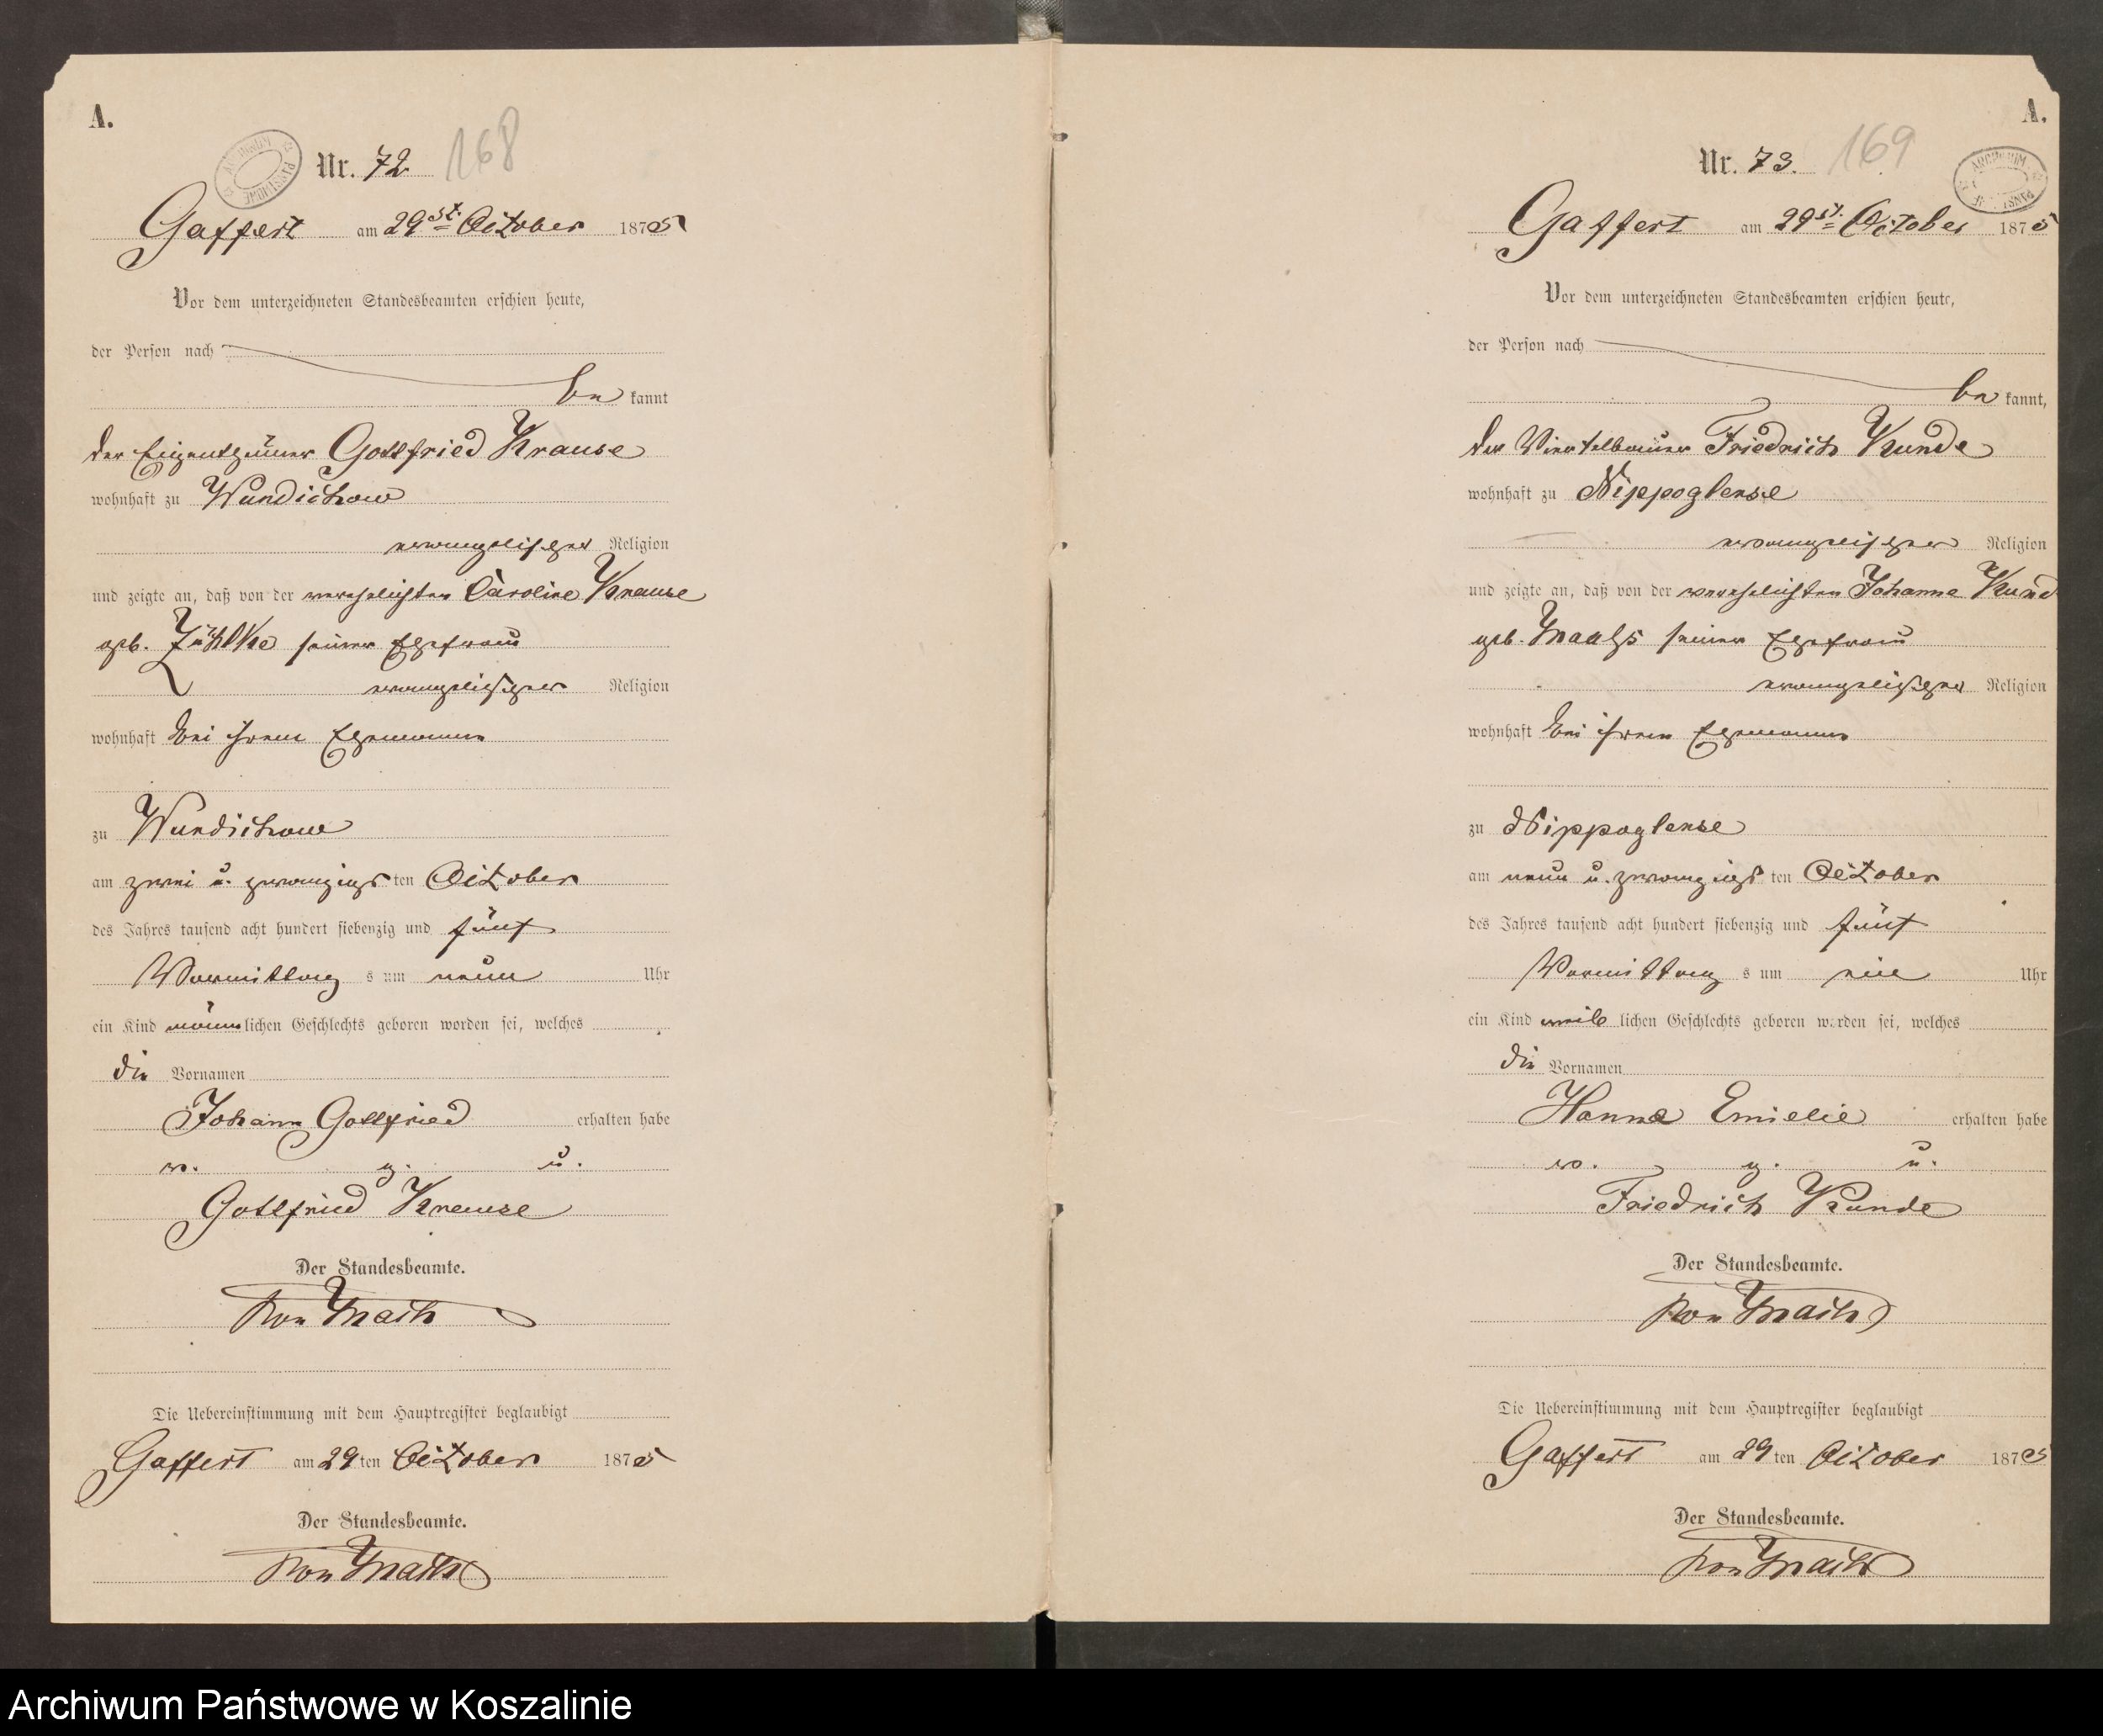 A.
Nr. 72. 168
ARCHIWUM PAŃSTWOWE
Gaffert am 29st. October 1875
Vor dem unterzeichneten Standesbeamten erschien heute,
der Person nach
be kannt
der Eigenthümer Gottfried Krause
wohnhaft zu Wundichow
evangelischer Religion
und zeigte an, daß von der verehelichten Caroline Krause
geb. Zühlke seiner Ehefrau
evangelischer Religion
wohnhaft bei ihrem Ehemanne
zu Wundichow
am zwei u. zwanzigs ten October
des Jahres tausend acht hundert siebenzig und fünf
Vormittag s um neun Uhr
ein Kind männ lichen Geschlechts geboren worden sei, welches
die Vornamen
Johann Gottfried erhalten habe
v. g. u.
Gottfried Krause
Der Standesbeamte.
Von
Die Uebereinstimmung mit dem Hauptregister beglaubigt
Gaffert am 29 ten October 1875
Der Standesbeamte.
Von
A.
Nr. 73. 169
ARCHIWUM
Gaffert am 29st. October 1875
Vor dem unterzeichneten Standesbeamten erschien heute,
der Person nach
be kannt,
der Viertelbauer Friedrich Kunde
wohnhaft zu Nippoglense
evangelischer Religion
und zeigte an, daß von der verehelichten Johanna Kund
geb. Maahs seiner Ehefrau
evangelischer Religion
wohnhaft bei ihrem Ehemanne
zu Nippoglense
am neun u. zwanzigs ten October
des Jahres tausend acht hundert siebenzig und fünf
Vormittag s um ein Uhr
ein Kind weib lichen Geschlechts geboren worden sei, welches
die Vornamen
Hanna Emielie erhalten habe
v. g. u.
Friedrich Kunde
Der Standesbeamte.
Von
Die Uebereinstimmung mit dem Hauptregister beglaubigt
Gaffert am 29 ten October 1875
Der Standesbeamte.
Von
Archiwum Państwowe w Koszalinie